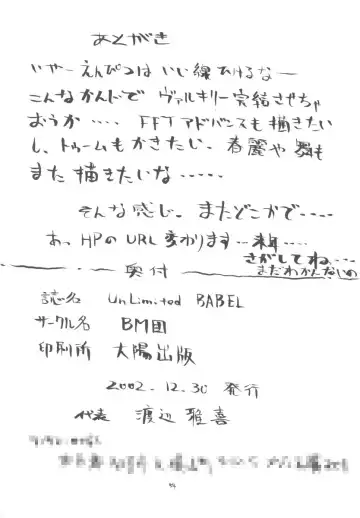 あとがき
いやーえんぴつは いい線ひけるなー
こんなかんじで ヴァルキリー完結させちゃ
おうか‥‥ FFTアドバンスも描きたい
し、トゥームもかきたい。春麗や 舞も
また 描きたいな‥‥‥
そんな感じ。またどこかで‥‥
あ、HPのURL変わります‥来年‥‥
さがしてね‥‥
まだわかんないの
奥付
誌名 UnLimited BABEL
サークル名 BM団
印刷所 大陽出版
2002.12.30 発行
代表 渡辺 雅喜